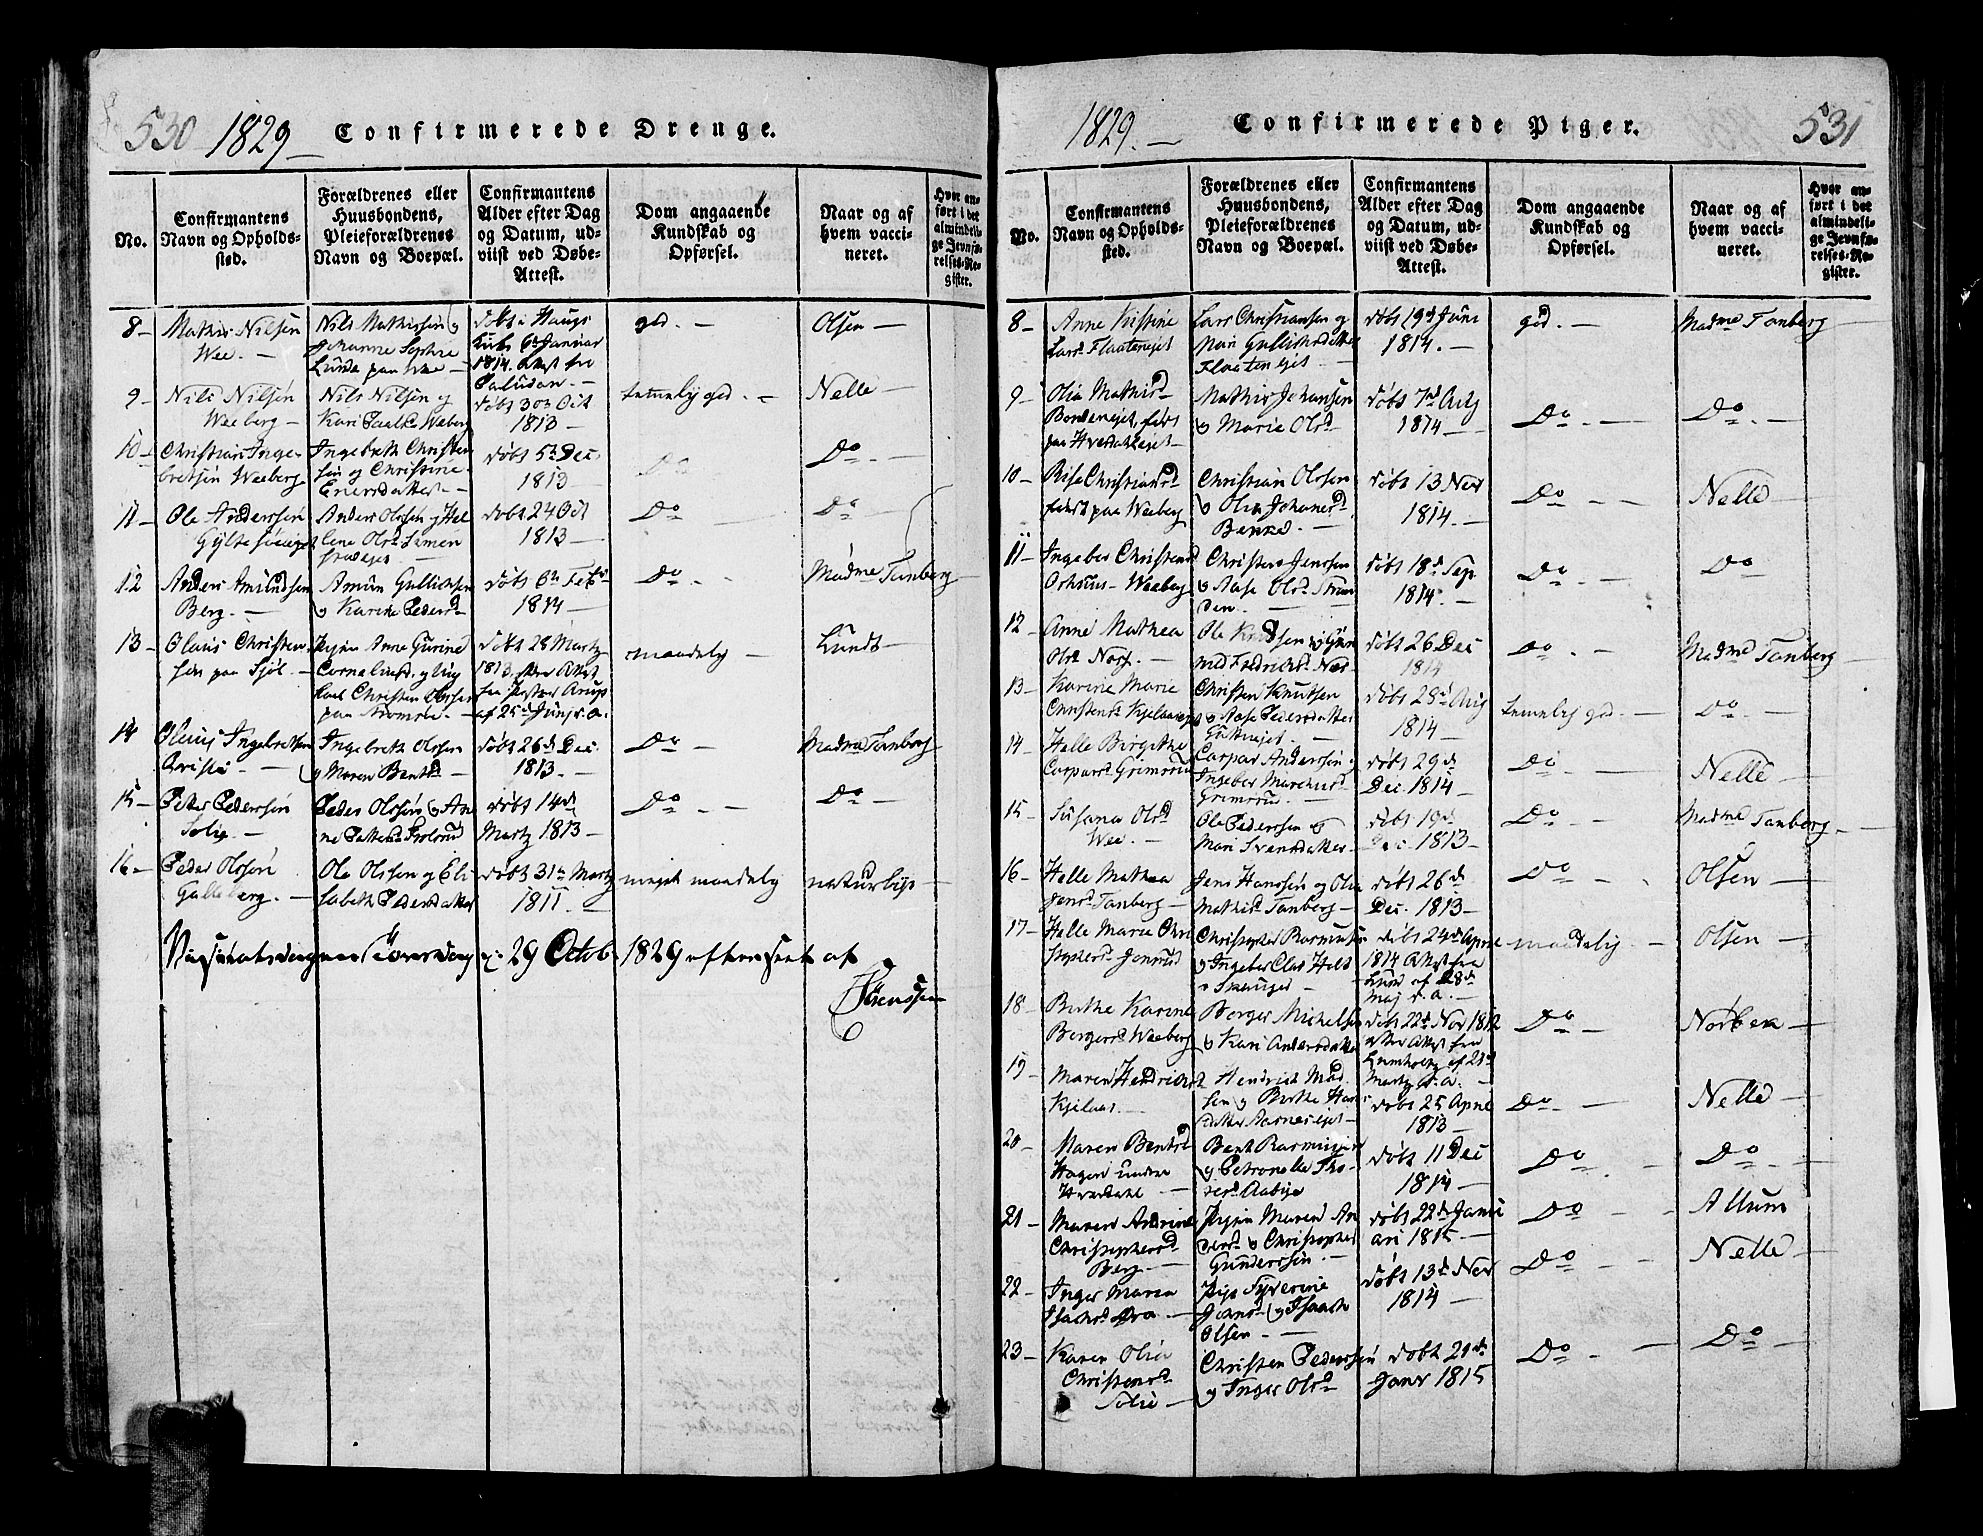 530 1829 Confirmerede Drenge.
No.
Confirmantens Navn og Opholds-sted.
Forældrenes eller Huusbondens, Pleieforældrenes Navn og Boepæl.
Confirmantens Alder efter Dag og Datum, ud-viist ved Døbe-Attest.
Dom angaaende Kundskab og Opførsel.
Naar og af hvem vacci-neret.
Hvor an-ført i det almindeli-ge Jevnfø-relses-Re-gister.
8 Mathis Nilsen
Wee
Nils Mathissen og
Johanne Sophie
Lunde paa Wee
døbt i Haugs
Kirke 6te Januar
1814. Attest fra
Paludan
god.
Olsen
9 Nils Nilsen
Weeberg
Nils Nilsen og
Kari Weeberg
døbt 3 Oct
1813
temmelig god.
Nelle
10 Christian Inge-
bretsen Weeberg
Ingebreth Christen-
sen og Christine
Enersdatter
døbt 5te Dec
1813
Do
Do
11 Ole Anderssen
Anders Olssen og Hel-
lene Olsd
døbt 24 Oct
1813
Do
Do
12 Anders Amundsen
Berg.
Amun Gullichsen
og Karine Pedersd
døbt 6te Feb
1814
Do
Madme Tanberg
13 Olaus Christen-
sen paa
Pigen Anne Gurine
Corneliusd. og
Christen Olssen
paa
døbt 28 Martz
1813. efter Attest
fra Pastor Arup
af 25de Junj d.a.
maadelig
Lundt
14 Oleus Ingebretsen
Ingebreth Olssen
og Maren Bentsd
døbt 26de Dec.
1813.
Do
Madme Tanberg
15 Peder Pederssen
Solie.
Peder Olssen og An-
ne
døbt 14de
Martz 1813
Do
Do
16 Peder Olssen
Galleberg.
Ole Olssen og Eli-
sabeth Pedersdatter
døbt 31te Martz
1811.
meget maadelig
naturlige
29 Octob 1829 efterseet af
Sörenssen
1829. Confirmerede Piger. 531
No.
Confirmantens Navn og Opholds-sted.
Forældrenes eller Huusbondens, Pleieforældrenes Navn og Boepæl.
Confirmantens Alder efter Dag og Datum, ud-viist ved Døbe-Attest.
Dom angaaende Kundskab og Opførsel.
Naar og af hvem vacci-neret.
Hvor an-ført i det almindeli-ge Jevnfø-relses-Re-gister.
8 Anne Kistine
Larsd Flaatenejet
Lars Christiansen og
Mari Gullichsdatter
Flaatenejet
døbt 19d Juni
1814.
god.
Madme Tanberg
9 Olia Mathisd
Mathis Johansen
og Marie Olsd
døbt 7de Aug
1814
Do
Do
10 Christiansd
paa Weeberg
Christian Olssen
og Olia Johansd
døbt 13 Nov
1814.
Do
Nelle
11 Ingeber Christensd
Weeberg
Christen Jenssen
og Aase Olsd
døbt 18de Sep
1814.
Do
Do
12 Anne Mathea
Olsd
Ole Knudssen og Gun-
døbt 26 Dec
1814
Do
Madme Tanberg
13 Karine Marie
Christensd
Christen Knutsen
og Aase Pedersdatter
døbt 28de Aug
1814
temmelig god.
Do
14 Helle Birgithe
Casparsd Grimsrud
Caspar Anderssen og
Ingeber
Grimsrud
døbt 29de
Dec. 1814
Do
Nelle
15 Susana Olsd
Wee.
Ole Pederssen og
Mari Svensdatter
døbt 19de
Dec. 1813
Do
Madme Tanberg
16 Helle Mathea
Jensd Tanberg
Jens Hanssen og Olia
Mathisd Tanberg
døbt 26de
Dec. 1813
Do
Olsen
17 Helle Marie Chri-
stophersd
Christopher Rasmussen
og Ingeber
døbt 24de April
1814 Attest fra
Lund af 28de
Maj d.a.
maadelig
Olsen
18 Birthe Karine
Bergersd Weeberg
Berger Michelsen
og Kari Andersdatter
døbt 22de Nov 1812
efter Attest fra
Lumholtz af 21de
Martz d.a.
Do
Norbye
19 Maren Hendrichsd
Kjelaas
Hendrich Mad-
sen og Birthe Hans-
datter Aarnesejet
døbt 25 April
1813
Do
Nelle
20 Maren Bentsd
Hagen under
Hvertahl
Bent Rasmussen
og Petronelle Tho-
døbt 11 Dec
1814
Do
Do
21 Maren Andrine
Christophersd
Berg.
Pigen Maren An-
dersd og Christopher
Gunderssen
døbt 22de Janu-
ari 1815
Do
Allum
22 Inger Maria
Isachsd
Pige Syverine
Jensd og Isaach
Olsen.
døbt 13de Nov
1814
Do
Nelle
23 Karen Olia
Christensd
Solie
Christen Pederssen
og Inger Olsd
døbt 21de
Janv 1815
Do
Do